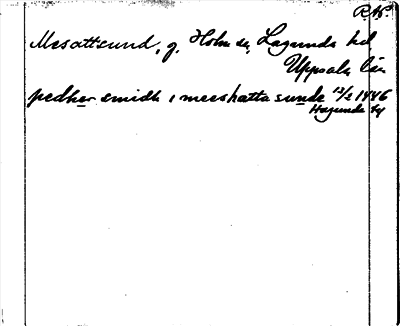 R.A.P.
Mesattsund, g. Holm sn, Lagunda hd,
Uppsala län
pedher smidh i meeshatta sunde 12/2 1446
Hagunda